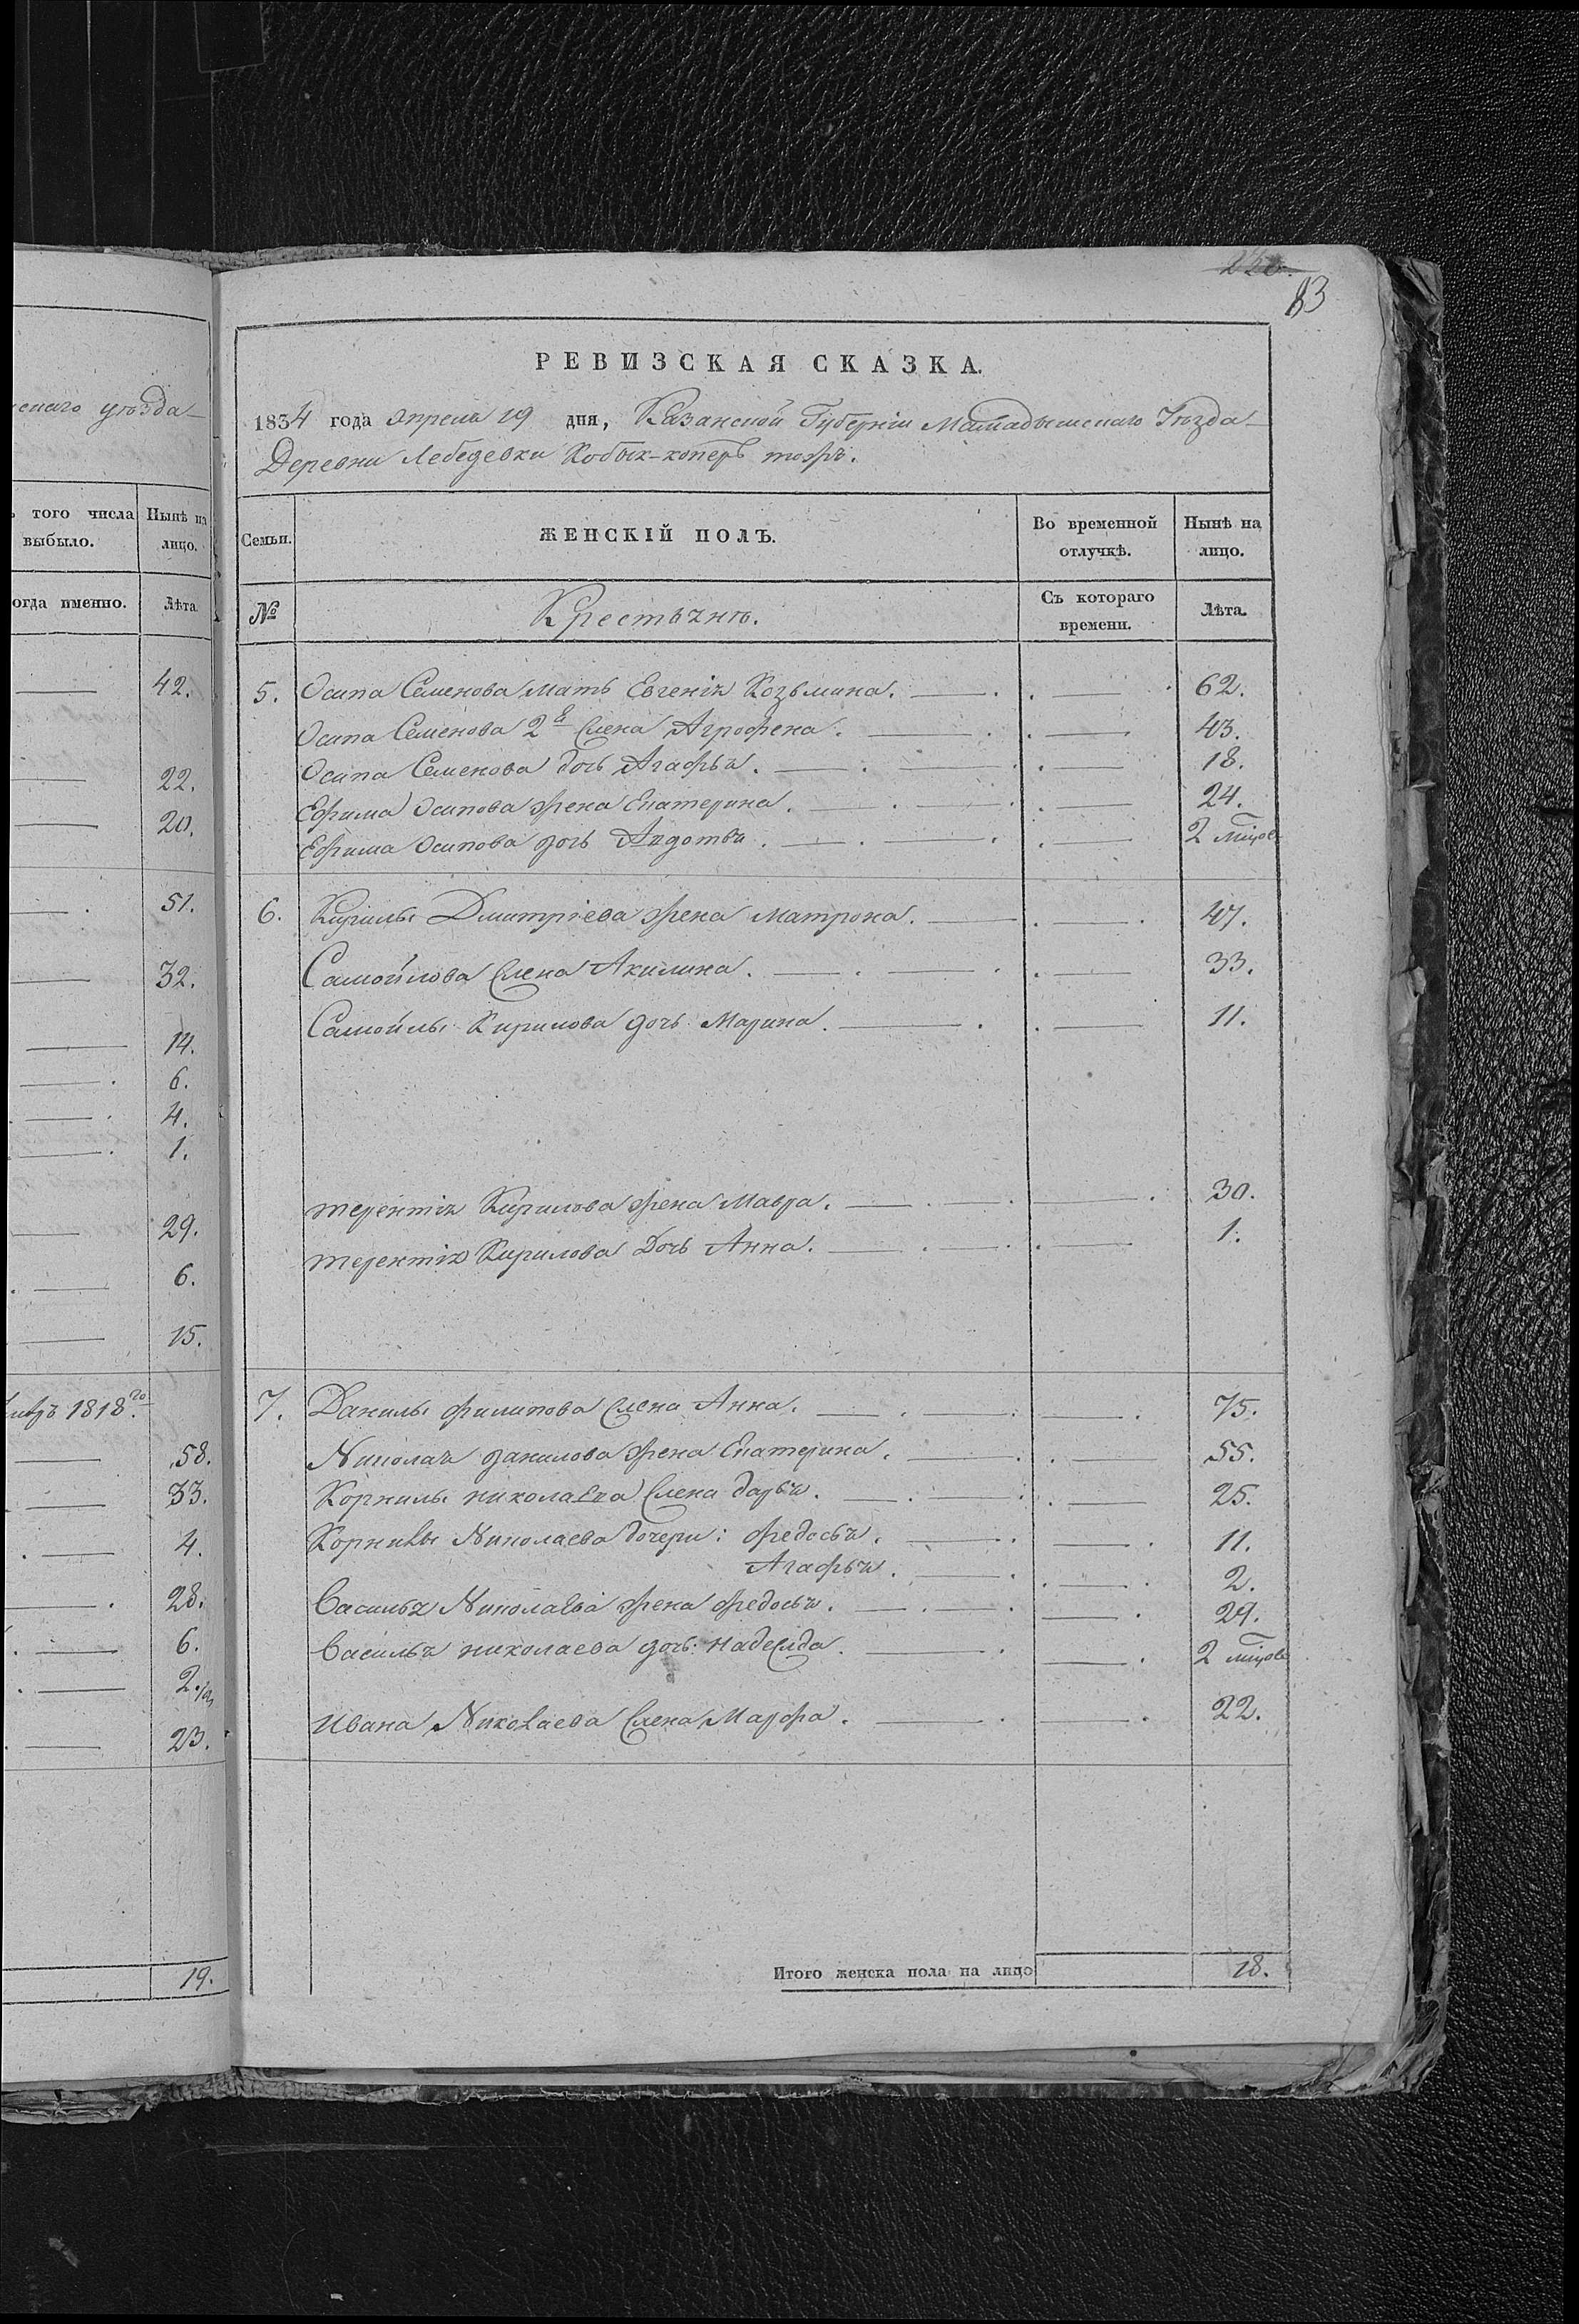 скаго уѣзда
того числа
выбыло.
Нынѣ на
лицо.
огда именно.
Лѣта
42.
22.
20.
51.
32.
14.
6.
4.
1.
29.
6.
15.
1818го
58.
33.
4.
28.
6.
2.
23.
19.
83
РЕВИЗСКАЯ СКАЗКА.
1834 года Апреля 19 дня, Казанской Губерніи Мамадышскаго Уѣзда
Деревни Лебедевки Кобык-коперъ тожъ.
Семьи.
ЖЕНСКІЙ ПОЛЪ.
Во временной
отлучкѣ.
Нынѣ на
лицо.
№
Крестьянъ.
Съ котораго
времени.
Лѣта.
5. Осипа Семенова мать Евгенія Козьмина. 62.
Осипа Семенова 2я жена Агрофена. 43.
Осипа Семенова дочь Агафья. 18.
Ефима Осипова жена Екатерина. 24.
Ефима Осипова дочь Авдотья. 2 мѣцовъ
6. Кирилы Дмитріева жена Матрона. 47.
Самойлова жена Акилина. 33.
Самойлы Кирилова дочь Марина. 11.
терентія Кирилова жена Мавра. 30.
терентія Кирилова Дочь Анна. 1.
7. Данилы филипова жена Анна. 75.
Николая данилова жена Екатерина. 55.
Корнилы николаева жена дарья. 25.
Корнилы Николаева дочери: федосья. 11.
Агафья. 2.
Василья Николаева жена федосья. 29.
Василья николаева дочь: надежда. 2 мѣцовъ
Ивана Николаева жена Марфа. 22.
Итого женска пола на лицо 18.